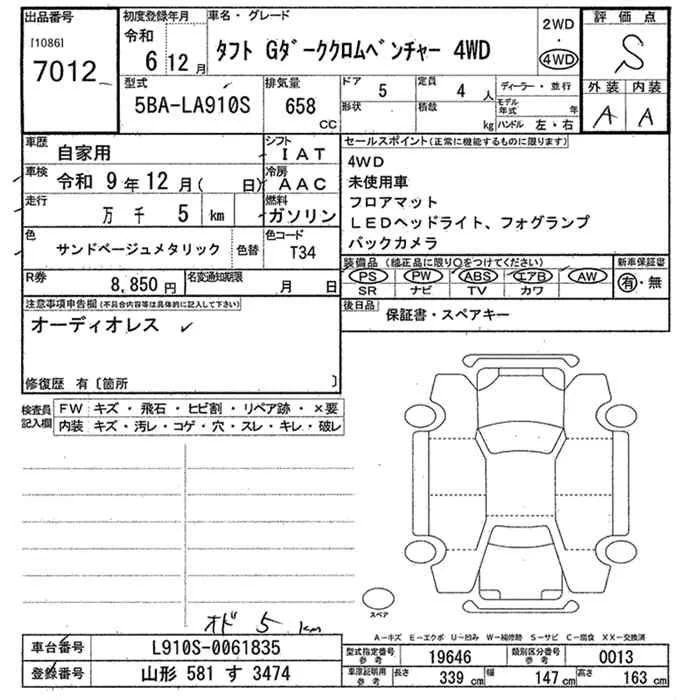 出品番号
[1086]
7012
初度登録年月
令和
6年12月
車名・グレード
タフト Gダーククロムベンチャー 4WD
2WD
・
4WD
評価点
S
外装 内装
A A
型式
5BA-LA910S
排気量
658
CC
ドア
5
定員
4人
形状
積載
kg
ディーラー・並行
モデル年式 年
ハンドル 左・右
車歴
自家用
シフト
IAT
車検
令和 9年12月( 日)
冷房
AAC
走行
万 千 5 km
燃料
ガソリン
色
サンドベージュメタリック
色替
色コード
T34
R券
8,850円
名変通知期限
月 日
セールスポイント(正常に機能するものに限ります)
4WD
未使用車
フロアマット
LEDヘッドライト、フォグランプ
バックカメラ
装備品(純正品に限り○をつけてください)
PS PW ABS エアB AW
SR ナビ TV カワ
新車保証書
有・無
後日品
保証書・スペアキー
注意事項申告欄(不具合内容等は具体的に記入して下さい)
オーディオレス
修復歴 有〔箇所 〕
検査員
記入欄
FW キズ・飛石・ヒビ割・リペア跡・×要
内装 キズ・汚レ・コゲ・穴・スレ・キレ・破レ
オド 5 km
スペア
A−キズ E−エクボ U−凹み W−補修跡 S−サビ C−腐食 XX−交換済
車台番号
L910S-0061835
登録番号
山形 581 す 3474
型式指定番号
参考
19646
類別区分番号
参考
0013
車庫証明用
参考
長さ
339 cm
幅
147 cm
高さ
163 cm